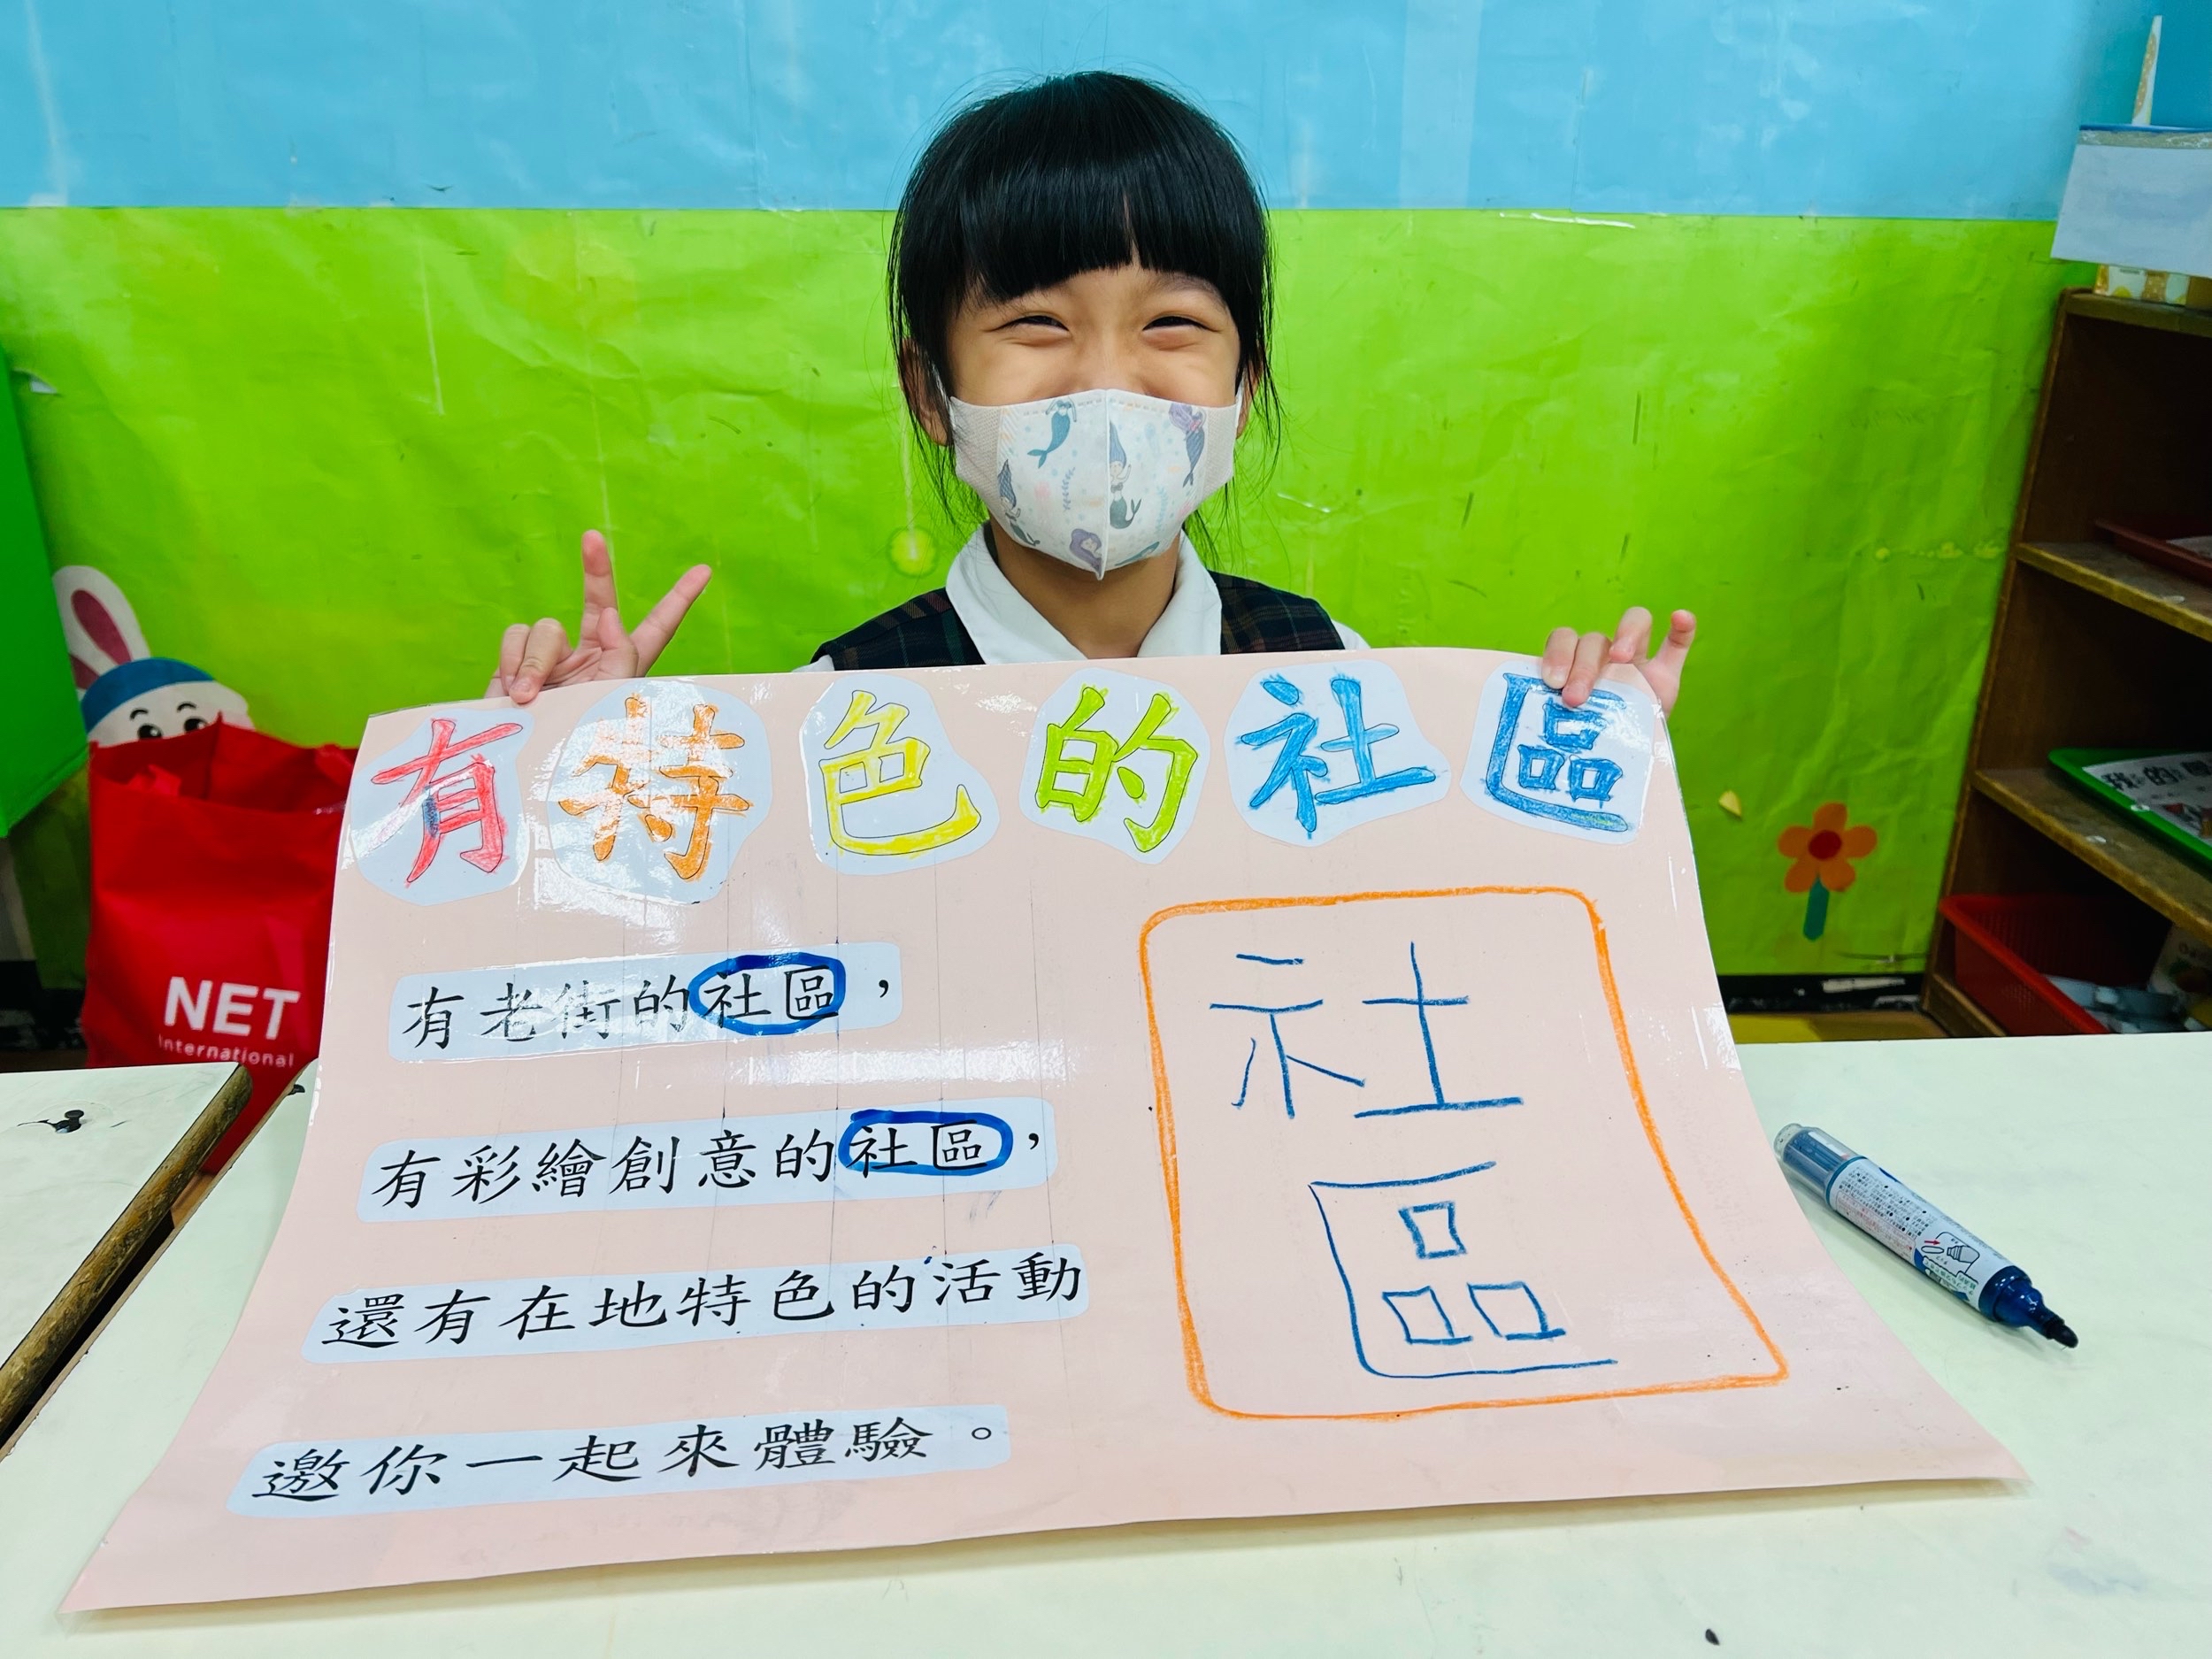 有特色的社區
有老街的社區，
有彩繪創意的社區，
還有在地特色的活動
邀你一起來體驗。
社
區
NET
International